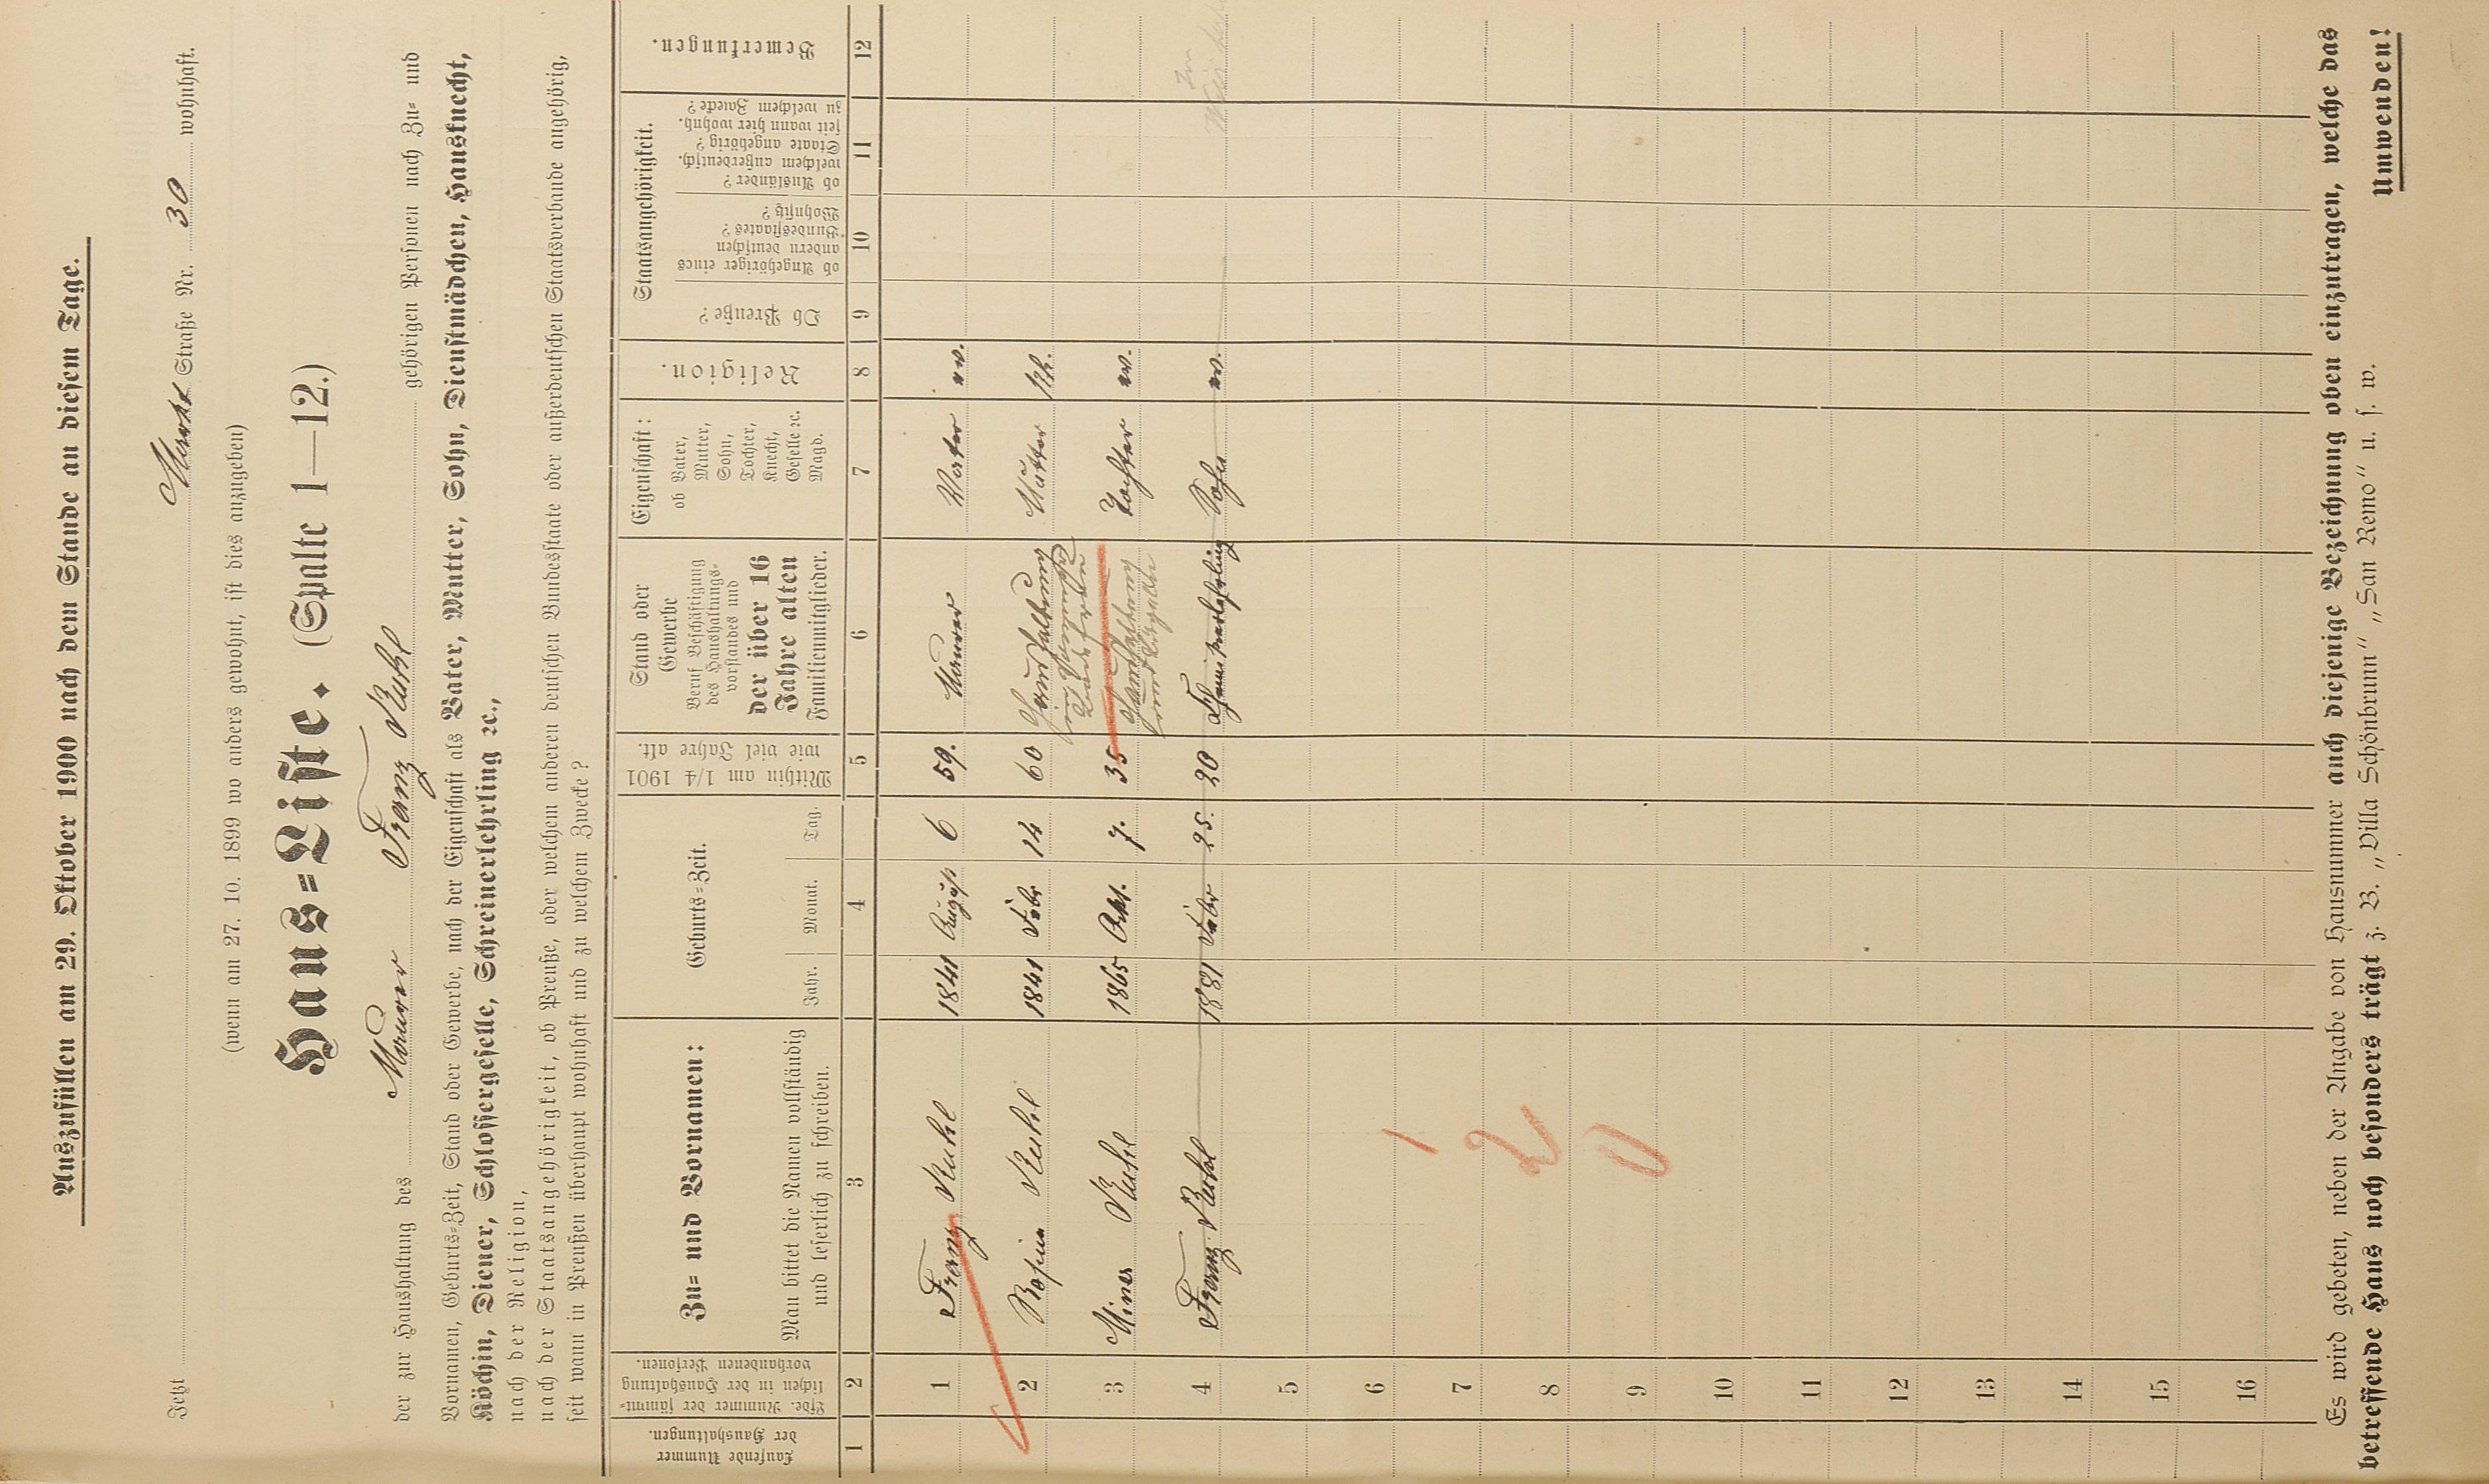 Auszufüllen am 29. Oktober 1900 nach dem Stande an diesem Tage.
Jetzt Markt Straße Nr. 30 wohnhaft.
(wenn am 27. 10. 1899 wo anders gewohnt, ist dies anzugeben)
Haus=Liste. (Spalte 1—12.)
der zur Haushaltung des Maurer Franz Ruhl gehörigen Personen nach Zu= und
Vornamen, Geburts=Zeit, Stand oder Gewerbe, nach der Eigenschaft als Vater, Mutter, Sohn, Dienstmädchen, Hausknecht,
Köchin, Diener, Schlossergeselle, Schreinerlehrling ꝛc.,
nach der Religion,
nach der Staatsangehörigkeit, ob Preuße, oder welchem anderen deutschen Bundesstaate oder außerdeutschen Staatsverbande angehörig,
seit wann in Preußen überhaupt wohnhaft und zu welchem Zwecke?
Laufende Nummer
der Haushaltungen.
Lfde. Nummer der sämmt=
lichen in der Haushaltung
vorhandenen Personen.
Zu= und Vornamen:
Man bittet die Namen vollständig
und leserlich zu schreiben.
Geburts=Zeit.
Jahr. Monat. Tag.
Mithin am 1/4 1901
wie viel Jahre alt.
Stand oder
Gewerbe
Beruf Beschäftigung
des Haushaltungs-
vorstandes und
der über 16
Jahre alten
Familienmitglieder.
Eigenschaft:
ob Vater,
Mutter,
Sohn,
Tochter,
Knecht,
Geselle ꝛc.
Magd.
Religion.
Staatsangehörigkeit.
Ob Preuße?
ob Angehöriger eines
andern deutschen
Bundesstaates?
Wohnsitz?
ob Ausländer?
welchem außerdeutsch.
Staate angehörig?
seit wann hier wohnh.
zu welchem Zwecke?
Bemerkungen.
1 2 3 4 5 6 7 8 9 10 11 12
1 Franz Ruhl 1841 August 6 59. Maurer Vater ev.
2 Rosina Ruhl 1841 Febr 14 60 Haushaltung Mutter kth.
3 Mina Ruhl 1865 Okt. 7. 35 Haushaltung Tochter ev.
4 Franz Ruhl 1881 Febr 25. 20 Sohn ev.
5
6 1
7 2
8
9 0
10
11
12
13
14
15
16
Es wird gebeten, neben der Angabe von Hausnummer auch diejenige Bezeichnung oben einzutragen, welche das
betreffende Haus noch besonders trägt z. B. „Villa Schönbrunn" „San Remo" u. s. w.
Umwenden!